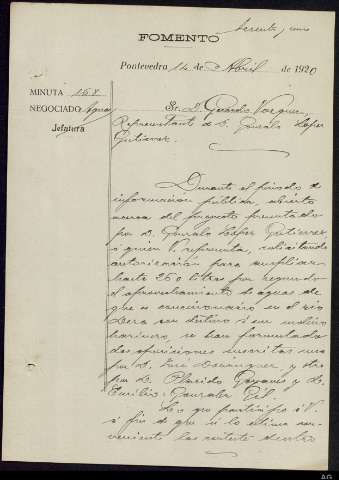 sesenta y uno
FOMENTO
Pontevedra 14 de Abril de 1920
MINUTA 168
NEGOCIADO Aguas
Jefatura
Sr. D. Gerardo Vazquez,
Representante de D. Gonzalo Lopez
Gutierrez
Durante el periodo de
informacion pública, abierto
acerca del proyecto presentado
por D. Gonzalo Lopez Gutierrez
á quien V. representa, solicitando
autorización para ampliar
hasta 250 litros por segundo
el aprovechamiento de aguas de
que es concesionario en el rio
Deza con destino á un molino
harinero, se han formulado
dos oposiciones suscritas una
por D. José Dominguez, y otra
por D. Placido y D.
Emilio Gonzalez Gil.
Lo que participo á V.
á fin de que si lo estima con-
veniente las conteste dentro